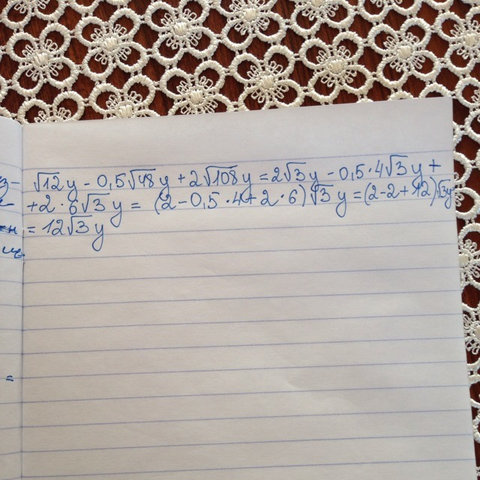 √12y - 0,5√48y + 2√108y = 2√3y - 0,5·4√3y +
+ 2·6√3y = (2-0,5·4+2·6)√3y = (2-2+12)√3y
= 12√3y
=